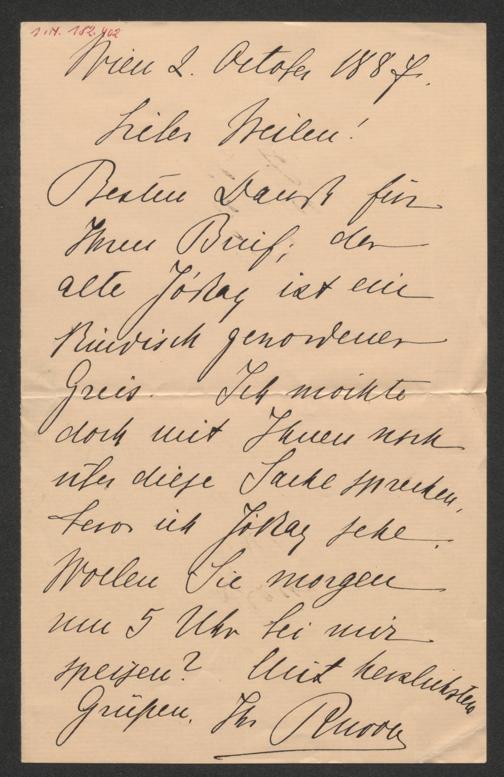 I.N. 182.402
Wien 2. October 1887.
Lieber Weilen!
Besten Dank für
Ihren Brief; der
alte Jókay ist ein
kindisch gewordener
Greis. Ich möchte
doch mit Ihnen noch
über diese Sache sprechen,
bevor ich Jókay sehe.
Wollen Sie morgen
um 5 Uhr bei mir
speisen? Mit herzlichsten
Grüßen, Ihr